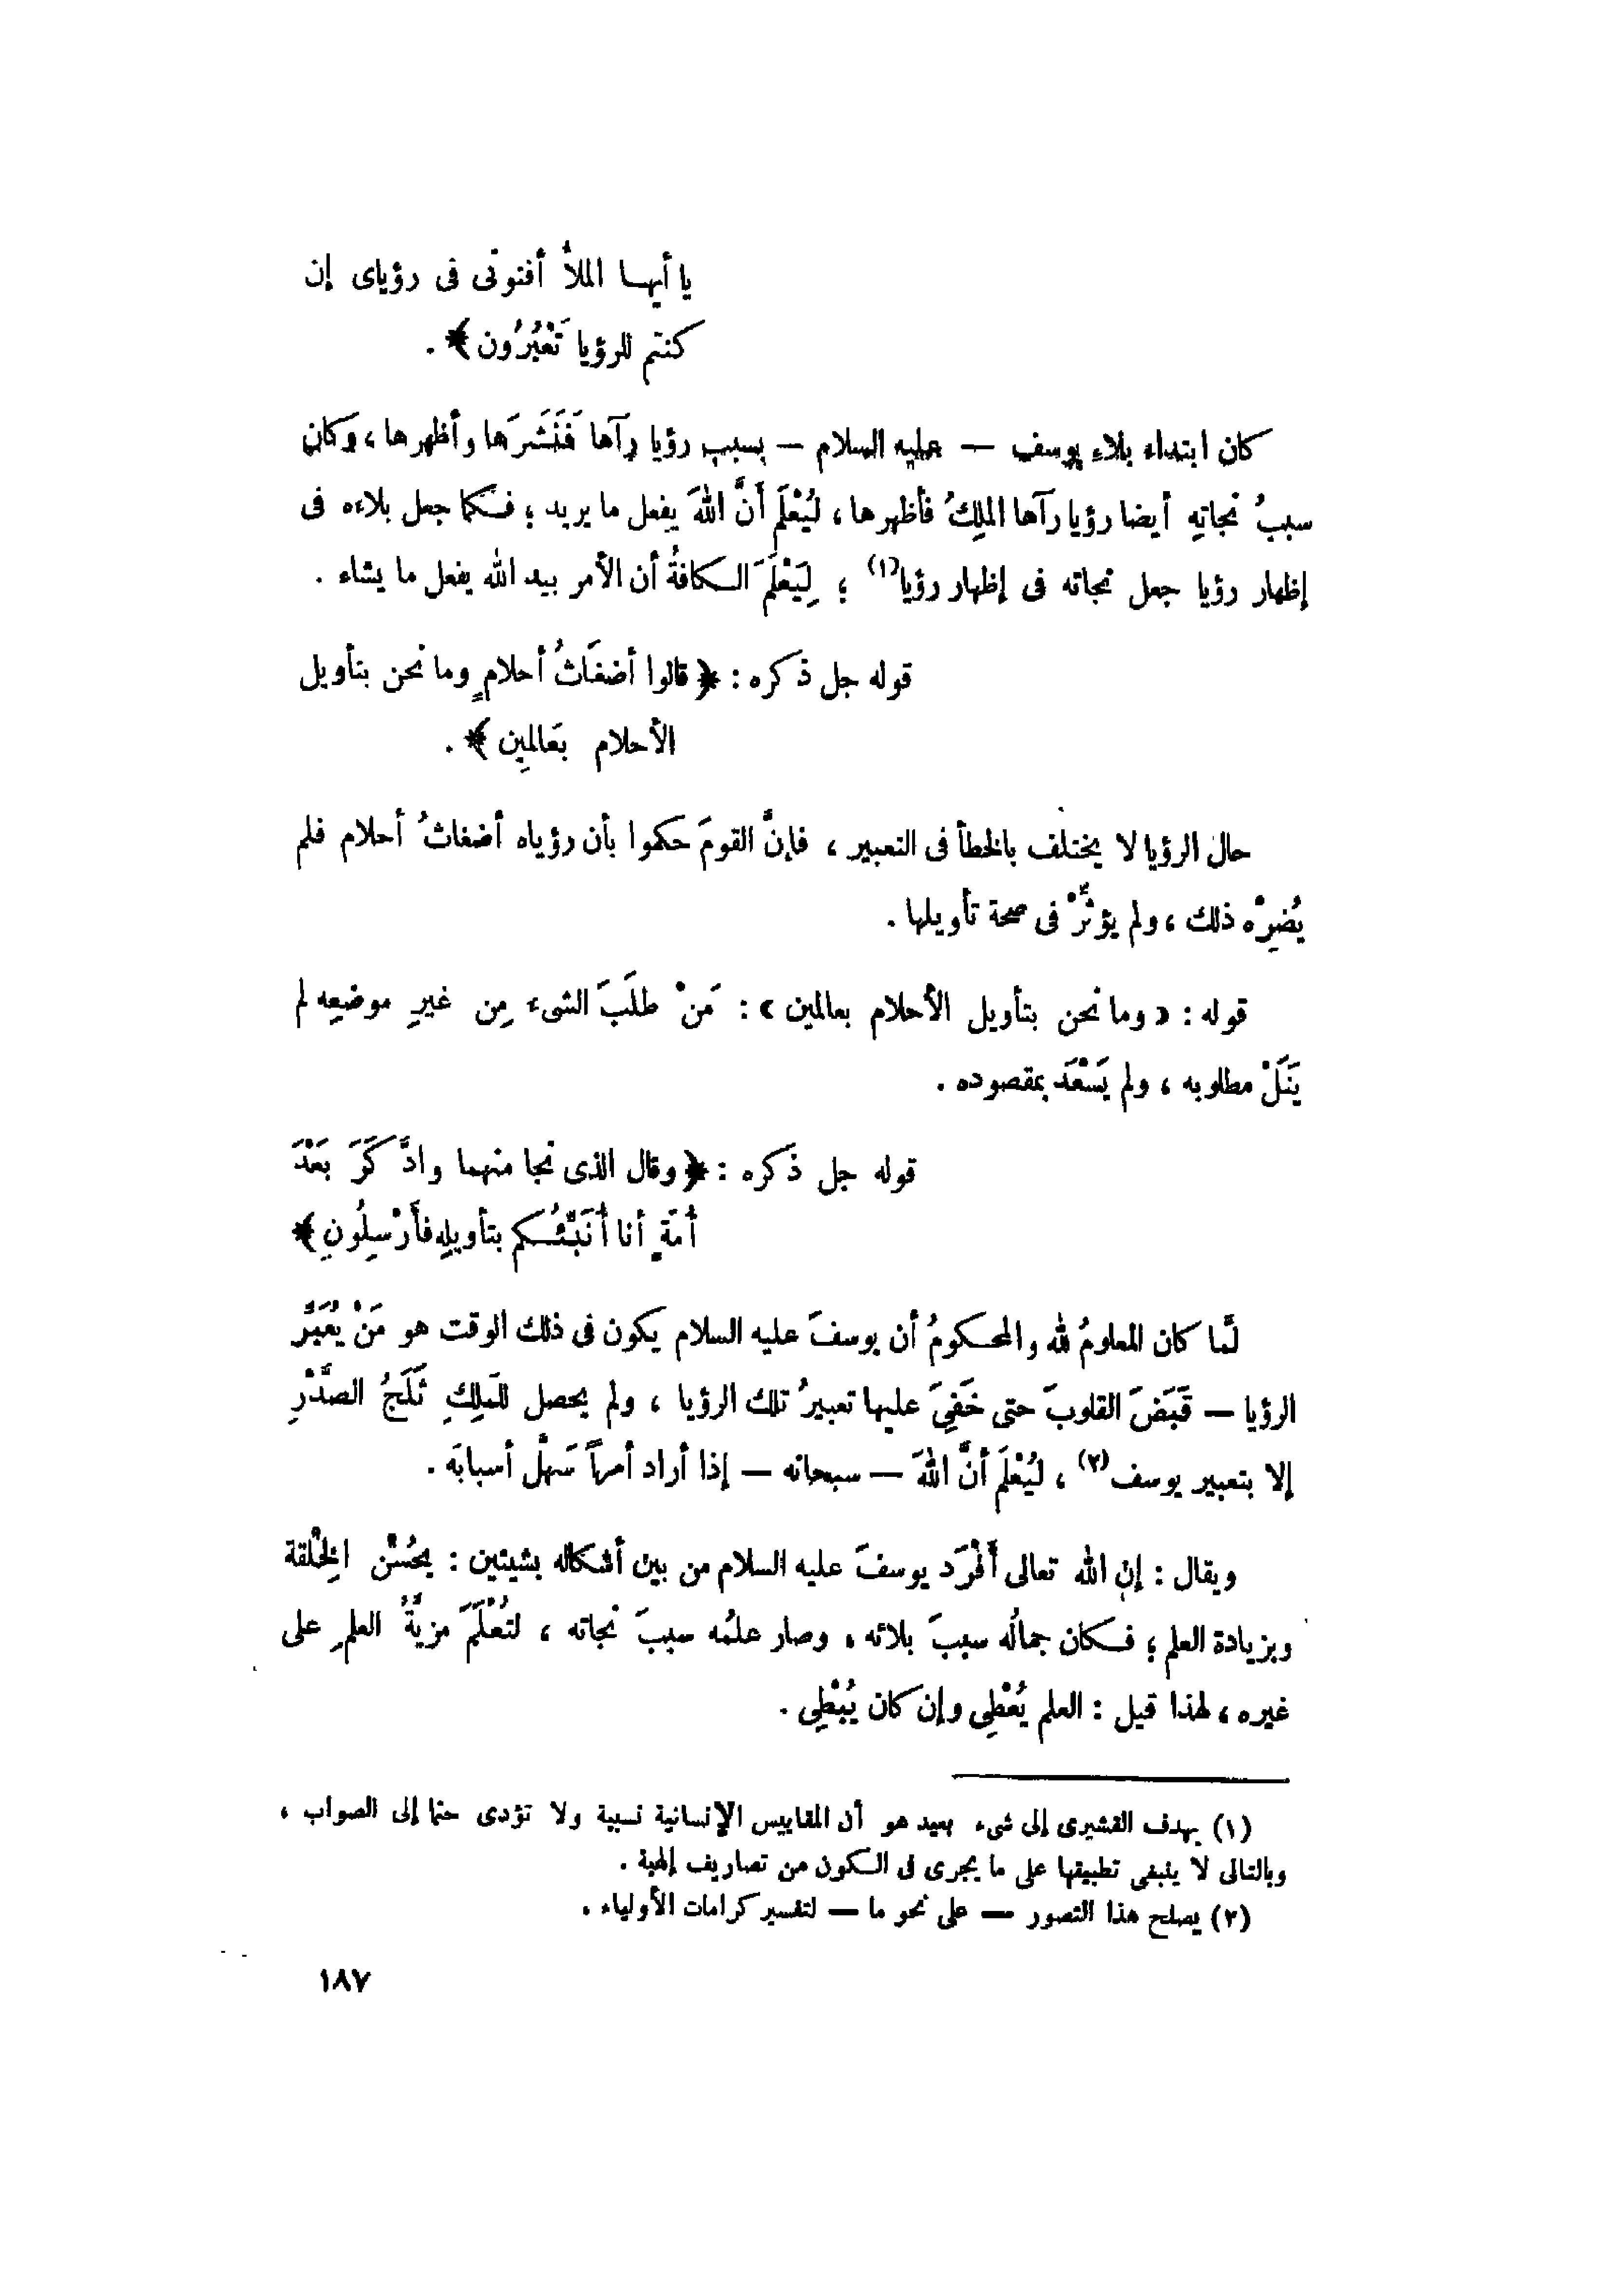 يا أيها الملأُ أفتونى فى رؤياى إن
كنتم للرؤيا تَعْبُرُون ﴾ .
كان ابتداء بلاءِ يوسف — عليه السلام — بسبب رؤيا رآها فَنَشَرَها وأظهرها ، وكان
سببُ نجاتِهِ أيضا رؤيا رآها المَلِكُ فأظهرها ، ليُعْلَمَ أنَّ اللهَ يفعل ما يريد ؛ فكما جعل بلاءه فى
إظهار رؤيا جعل نجاته فى إظهار رؤيا(١) ؛ لِيَعْلَمَ الكافةُ أن الأمر بيد الله يفعل ما يشاء .
قوله جل ذكره : ﴿ قالوا أضغَاثُ أحلامٍ وما نحن بتأويل
الأحلام بعَالمِين ﴾ .
حال الرؤيا لا يختلف بالخطأ فى التعبير ، فإنَّ القومَ حكموا بأن رؤياه أضغاثُ أحلام فلم
يُضِرْه ذلك ، ولم يؤثِّرْ فى صحة تأويلها .
قوله : « وما نحن بتأويل الأحلام بعالمين » : مَنْ طلَبَ الشىء مِن غيرِ موضعِه لم
يَنَلْ مطلوبه ، ولم يَسْعَد بمقصوده .
قوله جل ذكره : ﴿ وقال الذى نجا منهما وادَّكَرَ بَعْدَ
أُمَةٍ أنا أُنَبِّئُكم بتأويلِه فأَرْسِلُونِ ﴾
لمَّا كان المعلومُ لله والمحكومُ أن يوسفَ عليه السلام يكون فى ذلك الوقت هو مَنْ يُعَبِّرُ
الرؤيا — قَبَضَ القلوبَ حتى خَفِىَ عليها تعبيرُ تلك الرؤيا ، ولم يحصل للمَلِكِ ثَلَجُ الصَّدْرِ
إلا بتعبير يوسف(٢) ، ليُعْلَمَ أنَّ اللهَ — سبحانه — إذا أراد أمراً سَهلَّ أسبابَه .
ويقال : إن الله تعالى أَفْرَد يوسفَ عليه السلام من بين أشكاله بشيئين : بحُسْن الخِلْقة
وبزيادة العلم ؛ فكان جمالُه سببَ بلائه ، وصار علمُه سببَ نجاته ، لتُعْلَمَ مزيَّةُ العلمِ على
غيره ، لهذا قيل : العلم يُعْطِى وإن كان يُبْطِى .
(١) يهدف القشيرى إلى شىء بعيد هو أن المقاييس الإنسانية نسبية ولا تؤدى حتما إلى الصواب ،
وبالتالى لا ينبغى تطبيقها على ما يجرى فى الكون من تصاريف إلهية .
(٢) يصلح هذا التصور — على نحو ما — لتفسير كرامات الأولياء .
١٨٧